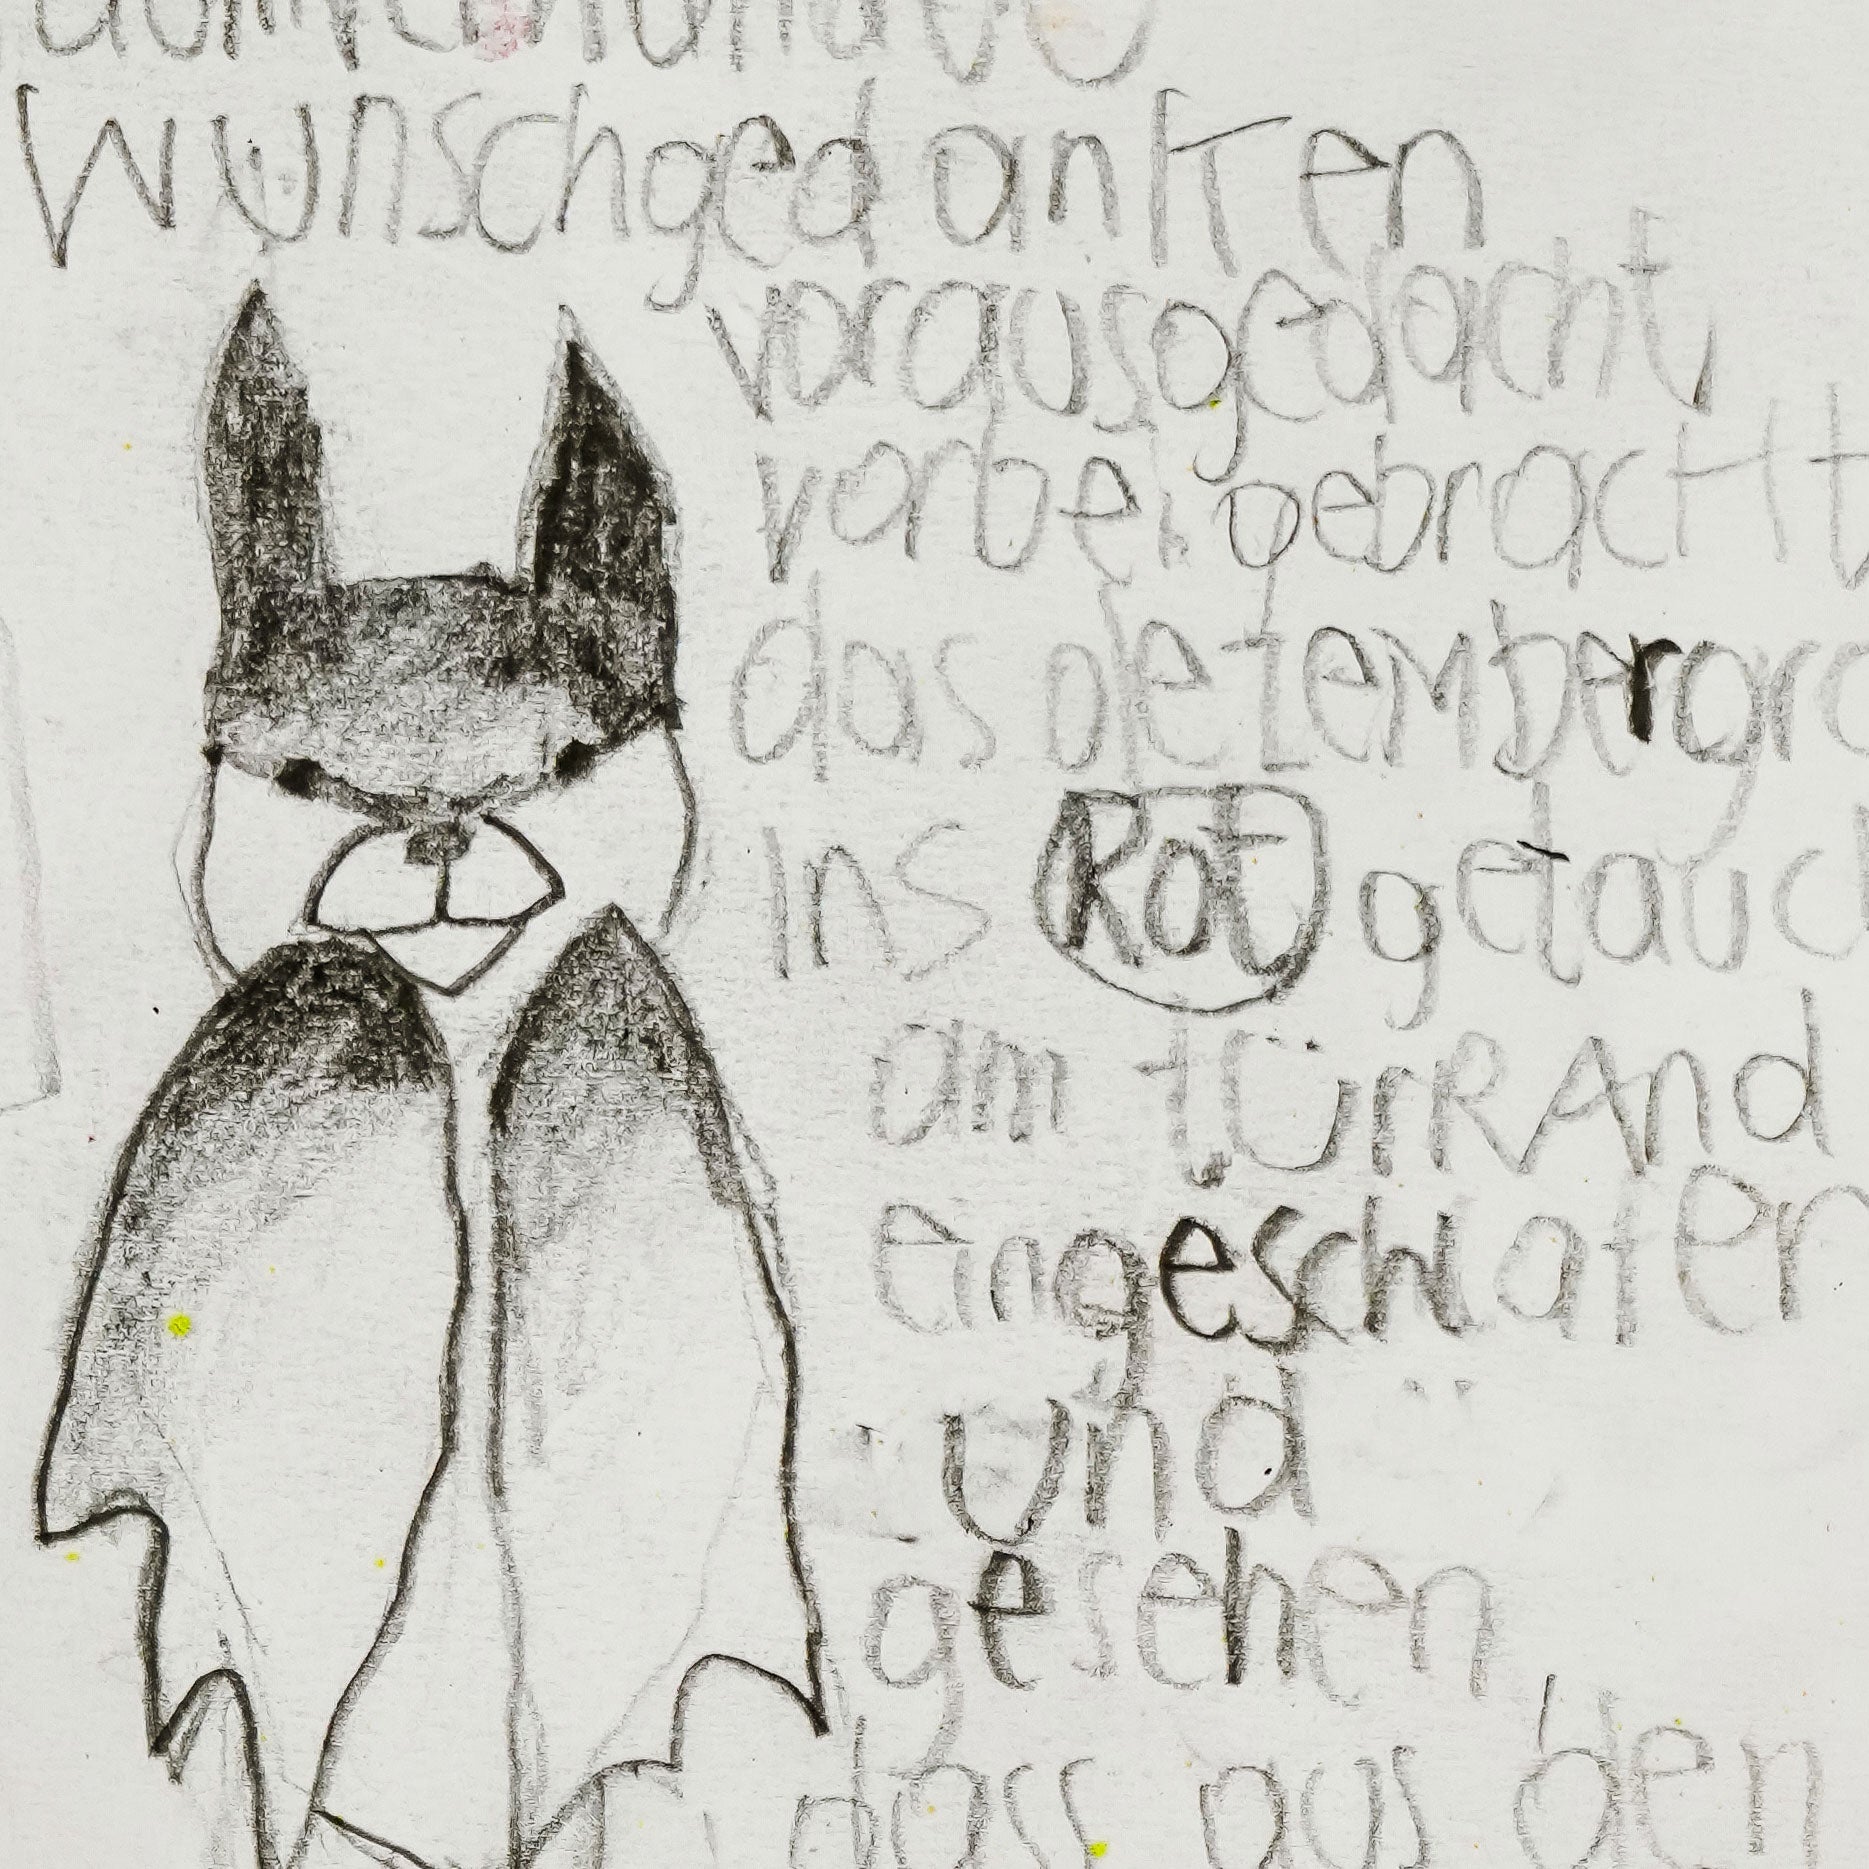 Wünschgedanken
vorausgedacht,
vorbei gebracht
das dezembergra
ins Rot getauch
am tÜrRAnd
eingeschlafen
und
gesehen
dass aus den